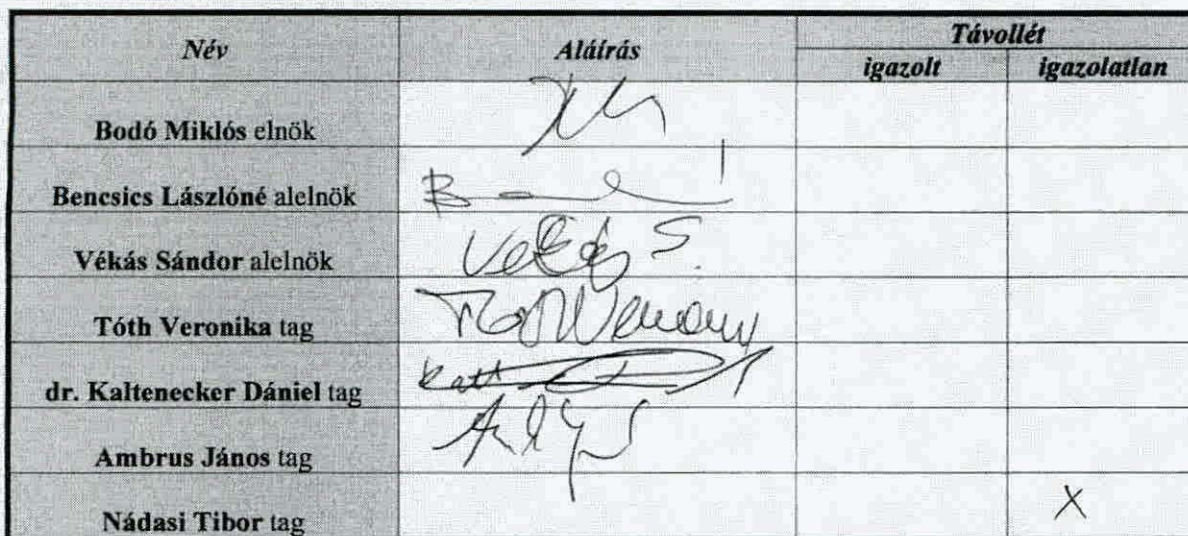 Név Aláírás Távollét
igazolt igazolatlan
Bodó Miklós elnök
Bencsics Lászlóné alelnök
Vékás Sándor alelnök Vékás S.
Tóth Veronika tag
dr. Kaltenecker Dániel tag
Ambrus János tag
Nádasi Tibor tag X